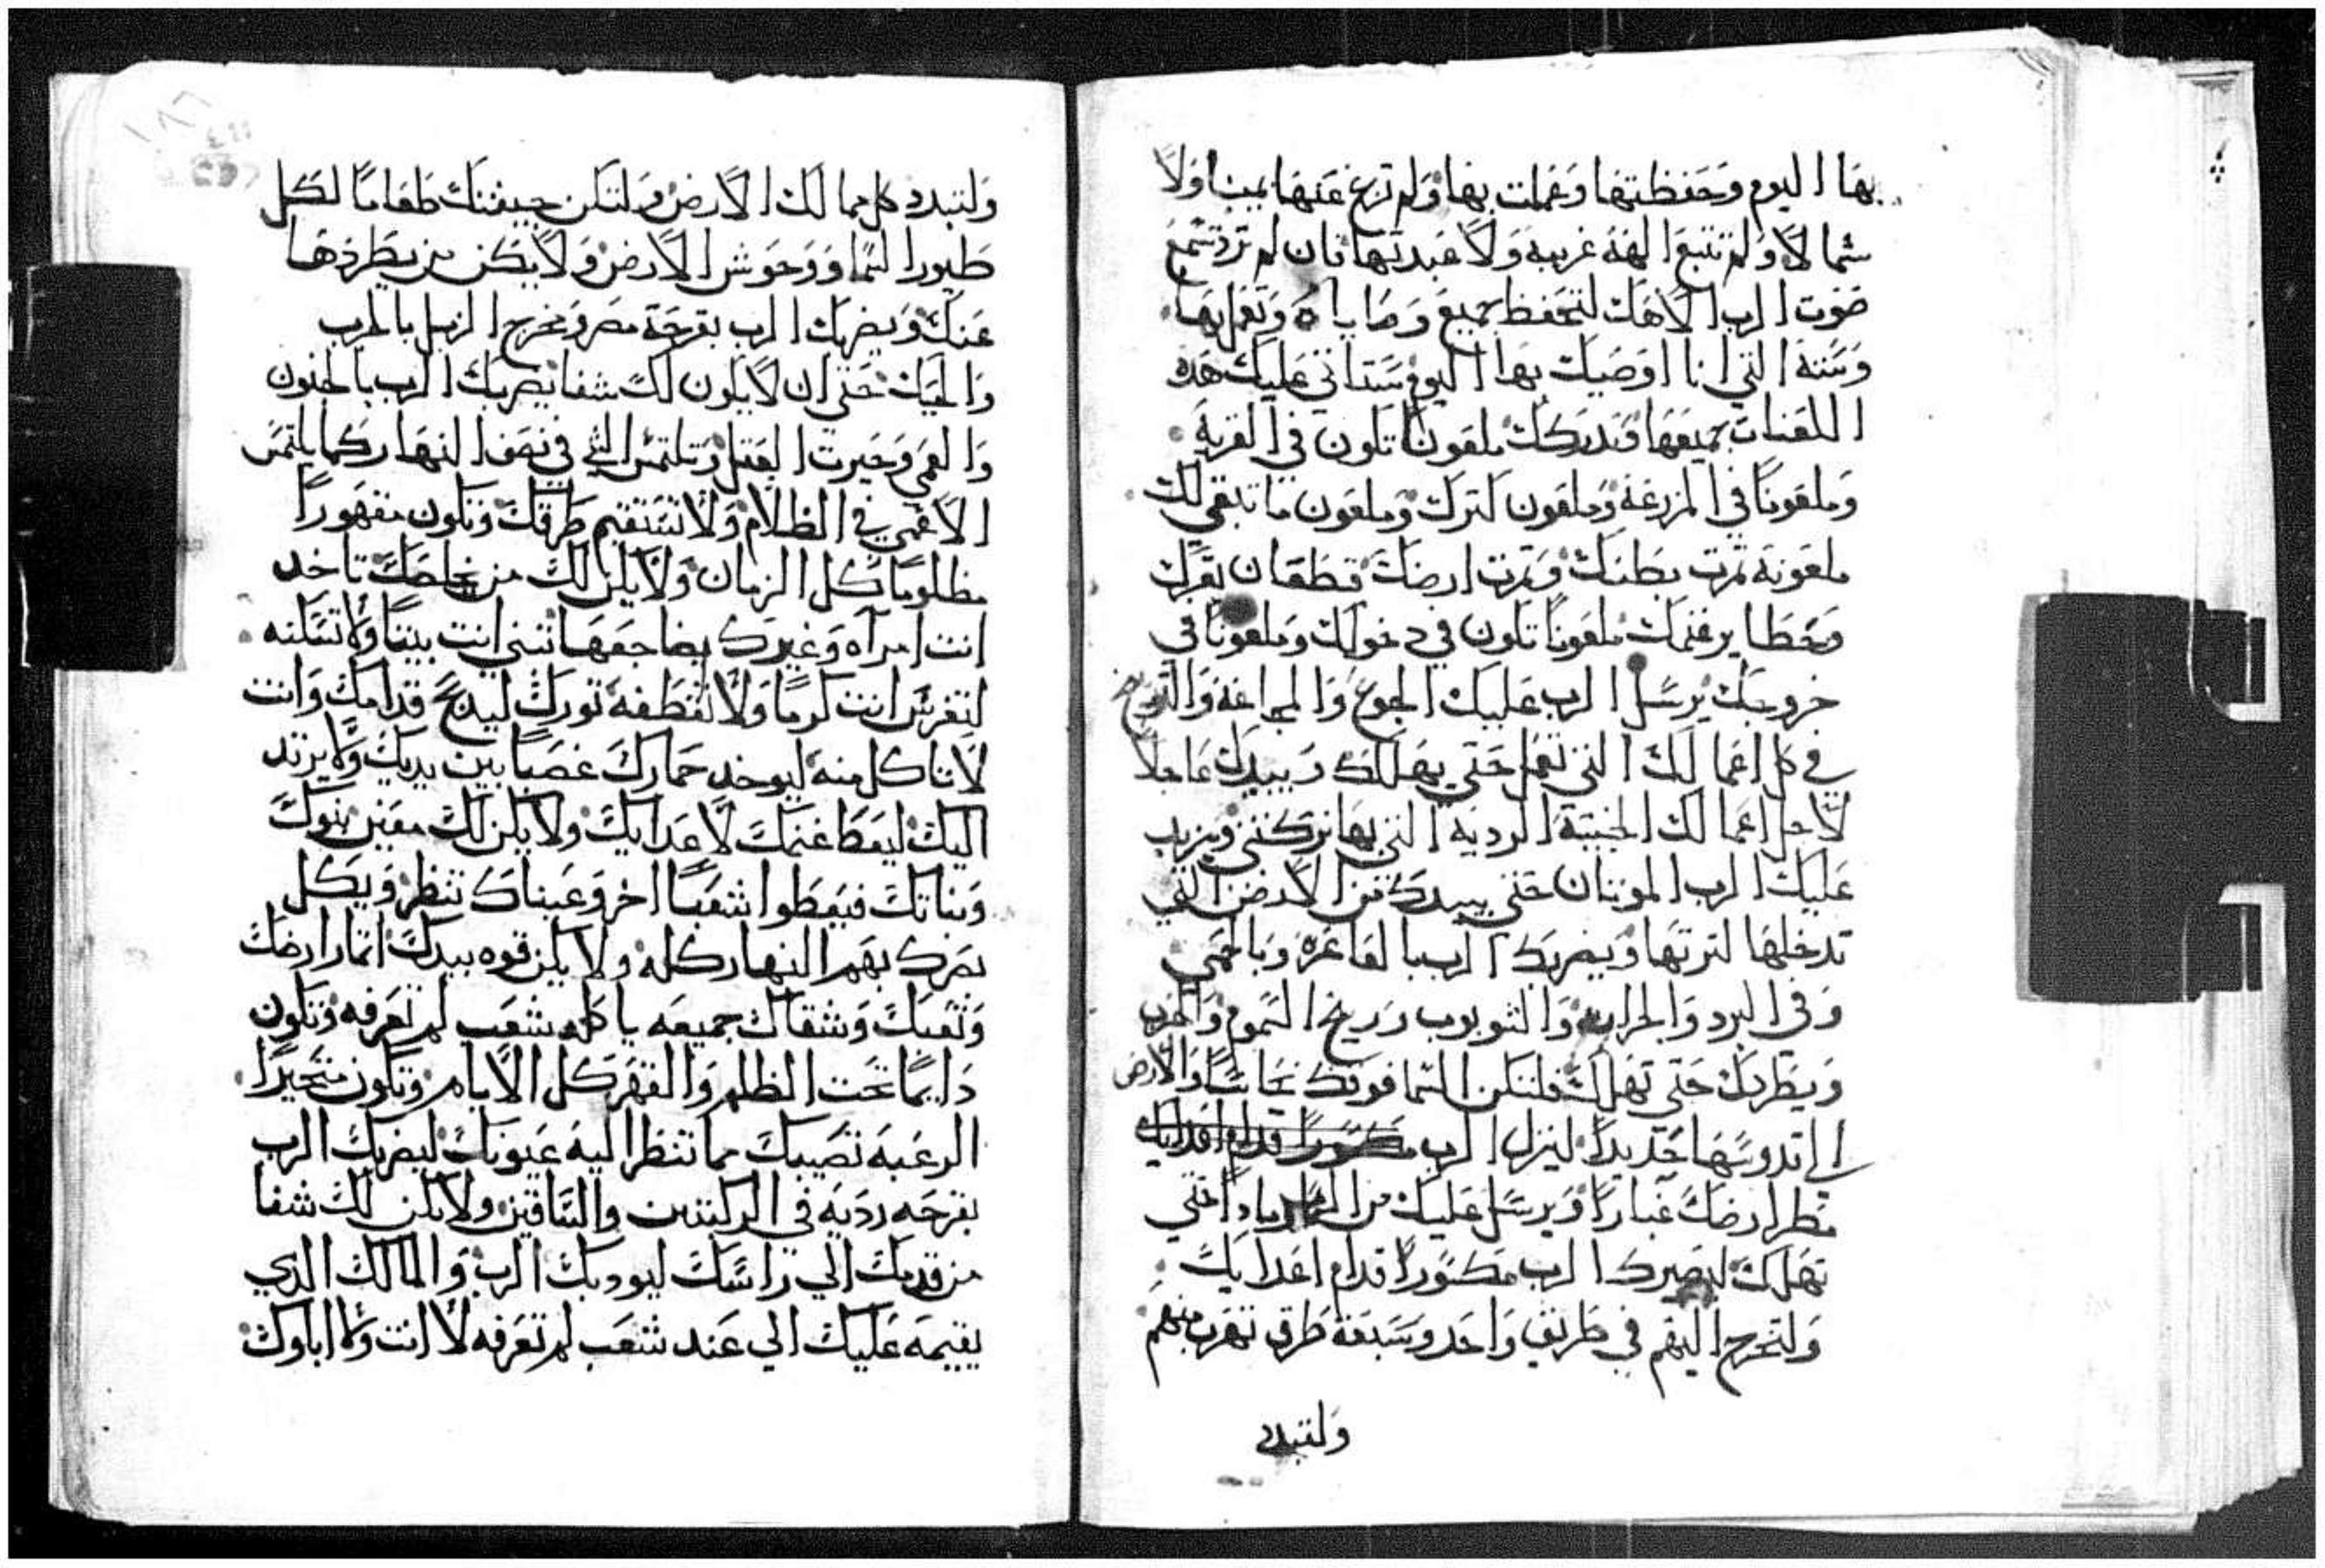 بها اليوم وحفظتها وعملت بها ولم تزغ عنها يمينا ولا
شمالا ولم تتبع الهة غريبة ولا عبدتها فان لم ترد تسمع
صوت الرب الاهك لتحفظ جميع وصاياه وتعمل بها
وسننه التي انا اوصيك بها اليوم ستداني عليك هذه
اللعنات جميعها وتدركك ملعونا تكون في القرية
وملعونا في المزرعة وملعون كنزك وملعون ما تبقي لك
ملعونة ثمرت بطنك وثمرت ارضك قطعان بقرك
وحظاير غنمك ملعونا تكون في دخولك وملعونا في
خروجك يرسل الرب عليك الجوع والمجاعة والتوبيخ
في كل اعمالك التي تعمل حتي يهلكك ويبيدك عاجلا
لاجل اعمالك الخبيثة الردية التي بها تركتني ويزيد
عليك الرب الموتان حتي يبيدك من الارض التي
تدخلها لترثها ويضربك الرب بالفاغرة وبالحمي
وفي البرد والحرارة والشوبوب وريح السموم والحرب
ويطردك حتي تهلك فلتكن السما فوقك نحاسا والارض
التي تدوسها حديدا لينزل الرب مكسورا قدام اعدايك
مطر ارضك غبارا ويرسل عليك من السما رمادا حتي
تهلك ليصيرك الرب مكسورا قدام اعدايك
ولتخرج اليهم في طريق واحد وسبعة طرق تهرب منهم
ولتبدد
ولتبدد كل ممالك الارض ولتكن جيفتك طعاما لكل
طيور السما ووحوش الارض ولا يكن من يطردها
عنك ويضربك الرب بقرحة مصر ومخرج الزبل بالجرب
والحيك حتي ان لا يكون لك شفا يضربك الرب بالجنون
والعمي وحيرت العقل وتلتمس الشي في نصف النهار كما يلتمس
الاعمي في الظلام ولا تستقيم طرقك وتكون مقهورا
مظلوما كل الزمان ولا يكن لك من يخلصك تاخد
انت امراه وغيرك يضاجعها تبني انت بيتا ولا تسكنه
لتغرس انت كرما ولا تقطفه ثورك ليدبح قدامك وانت
لا تاكل منه ليوخد حمارك غصبا بين يديك ولا يرتد
اليك ليعطا غنمك لاعدايك ولا يكن لك معين بنوك
وبناتك فيعطوا شعبا اخر وعيناك تنظر ويكل
بصرك بهم النهار كله ولا يكن قوه بيدك اتمار ارضك
وتعبك وشقاك جميعه ياكله شعب لم تعرفه وتكون
دايما تحت الظلم والقهر كل الايام وتكون متحيرا
الرعبه تصيبك مما تنظر اليه عيونك ليضربك الرب
بقرحه رديه في الركبتين والساقين ولا يكن لك شفا
من قدمك الي راسك ليوديك الرب والمالك الدي
يقيمه عليك الي عند شعب لم تعرفه لا انت ولا اباوك